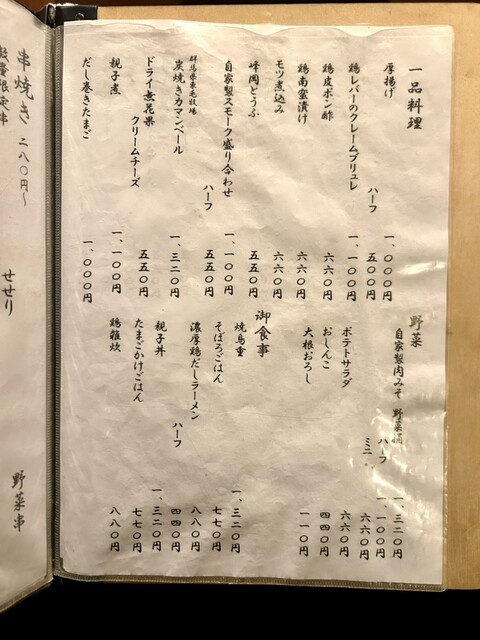 一品料理
厚揚げ 一、〇〇〇円
ハーフ 五〇〇円
鶏レバーのクレームブリュレ 一、一〇〇円
鶏皮ポン酢 六六〇円
鶏南蛮漬け 六六〇円
モツ煮込み 六六〇円
峰岡とうふ 五五〇円
自家製スモーク盛り合わせ 一、一〇〇円
ハーフ 五五〇円
群馬県東毛牧場
炭焼きカマンベール 一、三二〇円
ドライ無花果
クリームチーズ 五五〇円
親子煮 一、一〇〇円
だし巻きたまご 一、〇〇〇円
野菜
自家製肉みそ 野菜 一、三二〇円
ハーフ 一、一〇〇円
ミニ 六六〇円
ポテトサラダ 六六〇円
おしんこ 四四〇円
大根おろし 一一〇円
御食事
焼鳥重 一、三二〇円
そぼろごはん 七七〇円
濃厚鶏だしラーメン 八八〇円
ハーフ 四四〇円
親子丼 一、三二〇円
たまごかけごはん 七七〇円
鶏雑炊 八八〇円
串焼き 二八〇円〜
数量限定串
せせり
野菜串